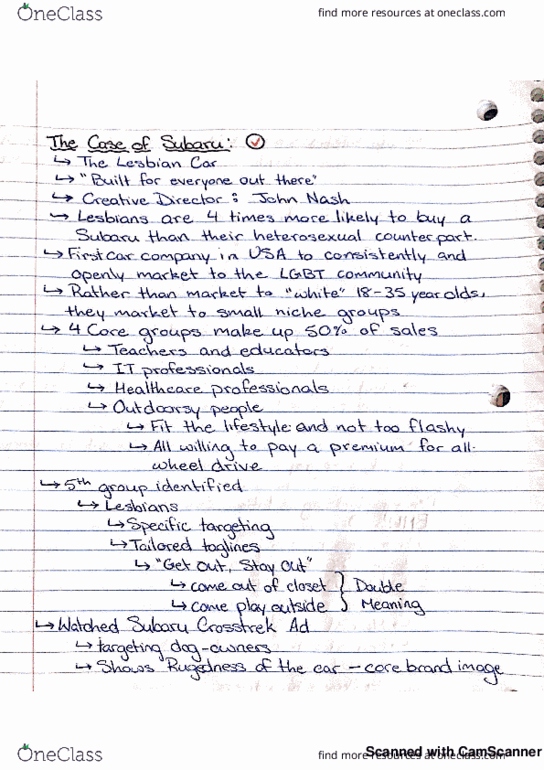 OneClass
find more resources at oneclass.com
The Case of Subaru:
↳ The Lesbian Car
↳ "Built for everyone out there"
↳ Creative Director: John Nash
↳ Lesbians are 4 times more likely to buy a
Subaru than their heterosexual counterpart.
↳ First car company in USA to consistently and
openly market to the LGBT community
↳ Rather than market to "white" 18-35 year olds,
they market to small niche groups
↳ 4 Core groups make up 50% of sales
↳ Teachers and educators
↳ IT professionals
↳ Healthcare professionals
↳ Outdoorsy people
↳ Fit the lifestyle and not too flashy
↳ All willing to pay a premium for all-
wheel drive
↳ 5th group identified
↳ Lesbians
↳ Specific targeting
↳ Tailored taglines
↳ "Get Out, Stay Out"
↳ come out of closet } Double
↳ come play outside } Meaning
↳ Watched Subaru Crosstrek Ad
↳ targeting dog-owners
↳ Shows Rugedness of the car - core brand image
OneClass
find more resources at oneclass.com
Scanned with CamScanner